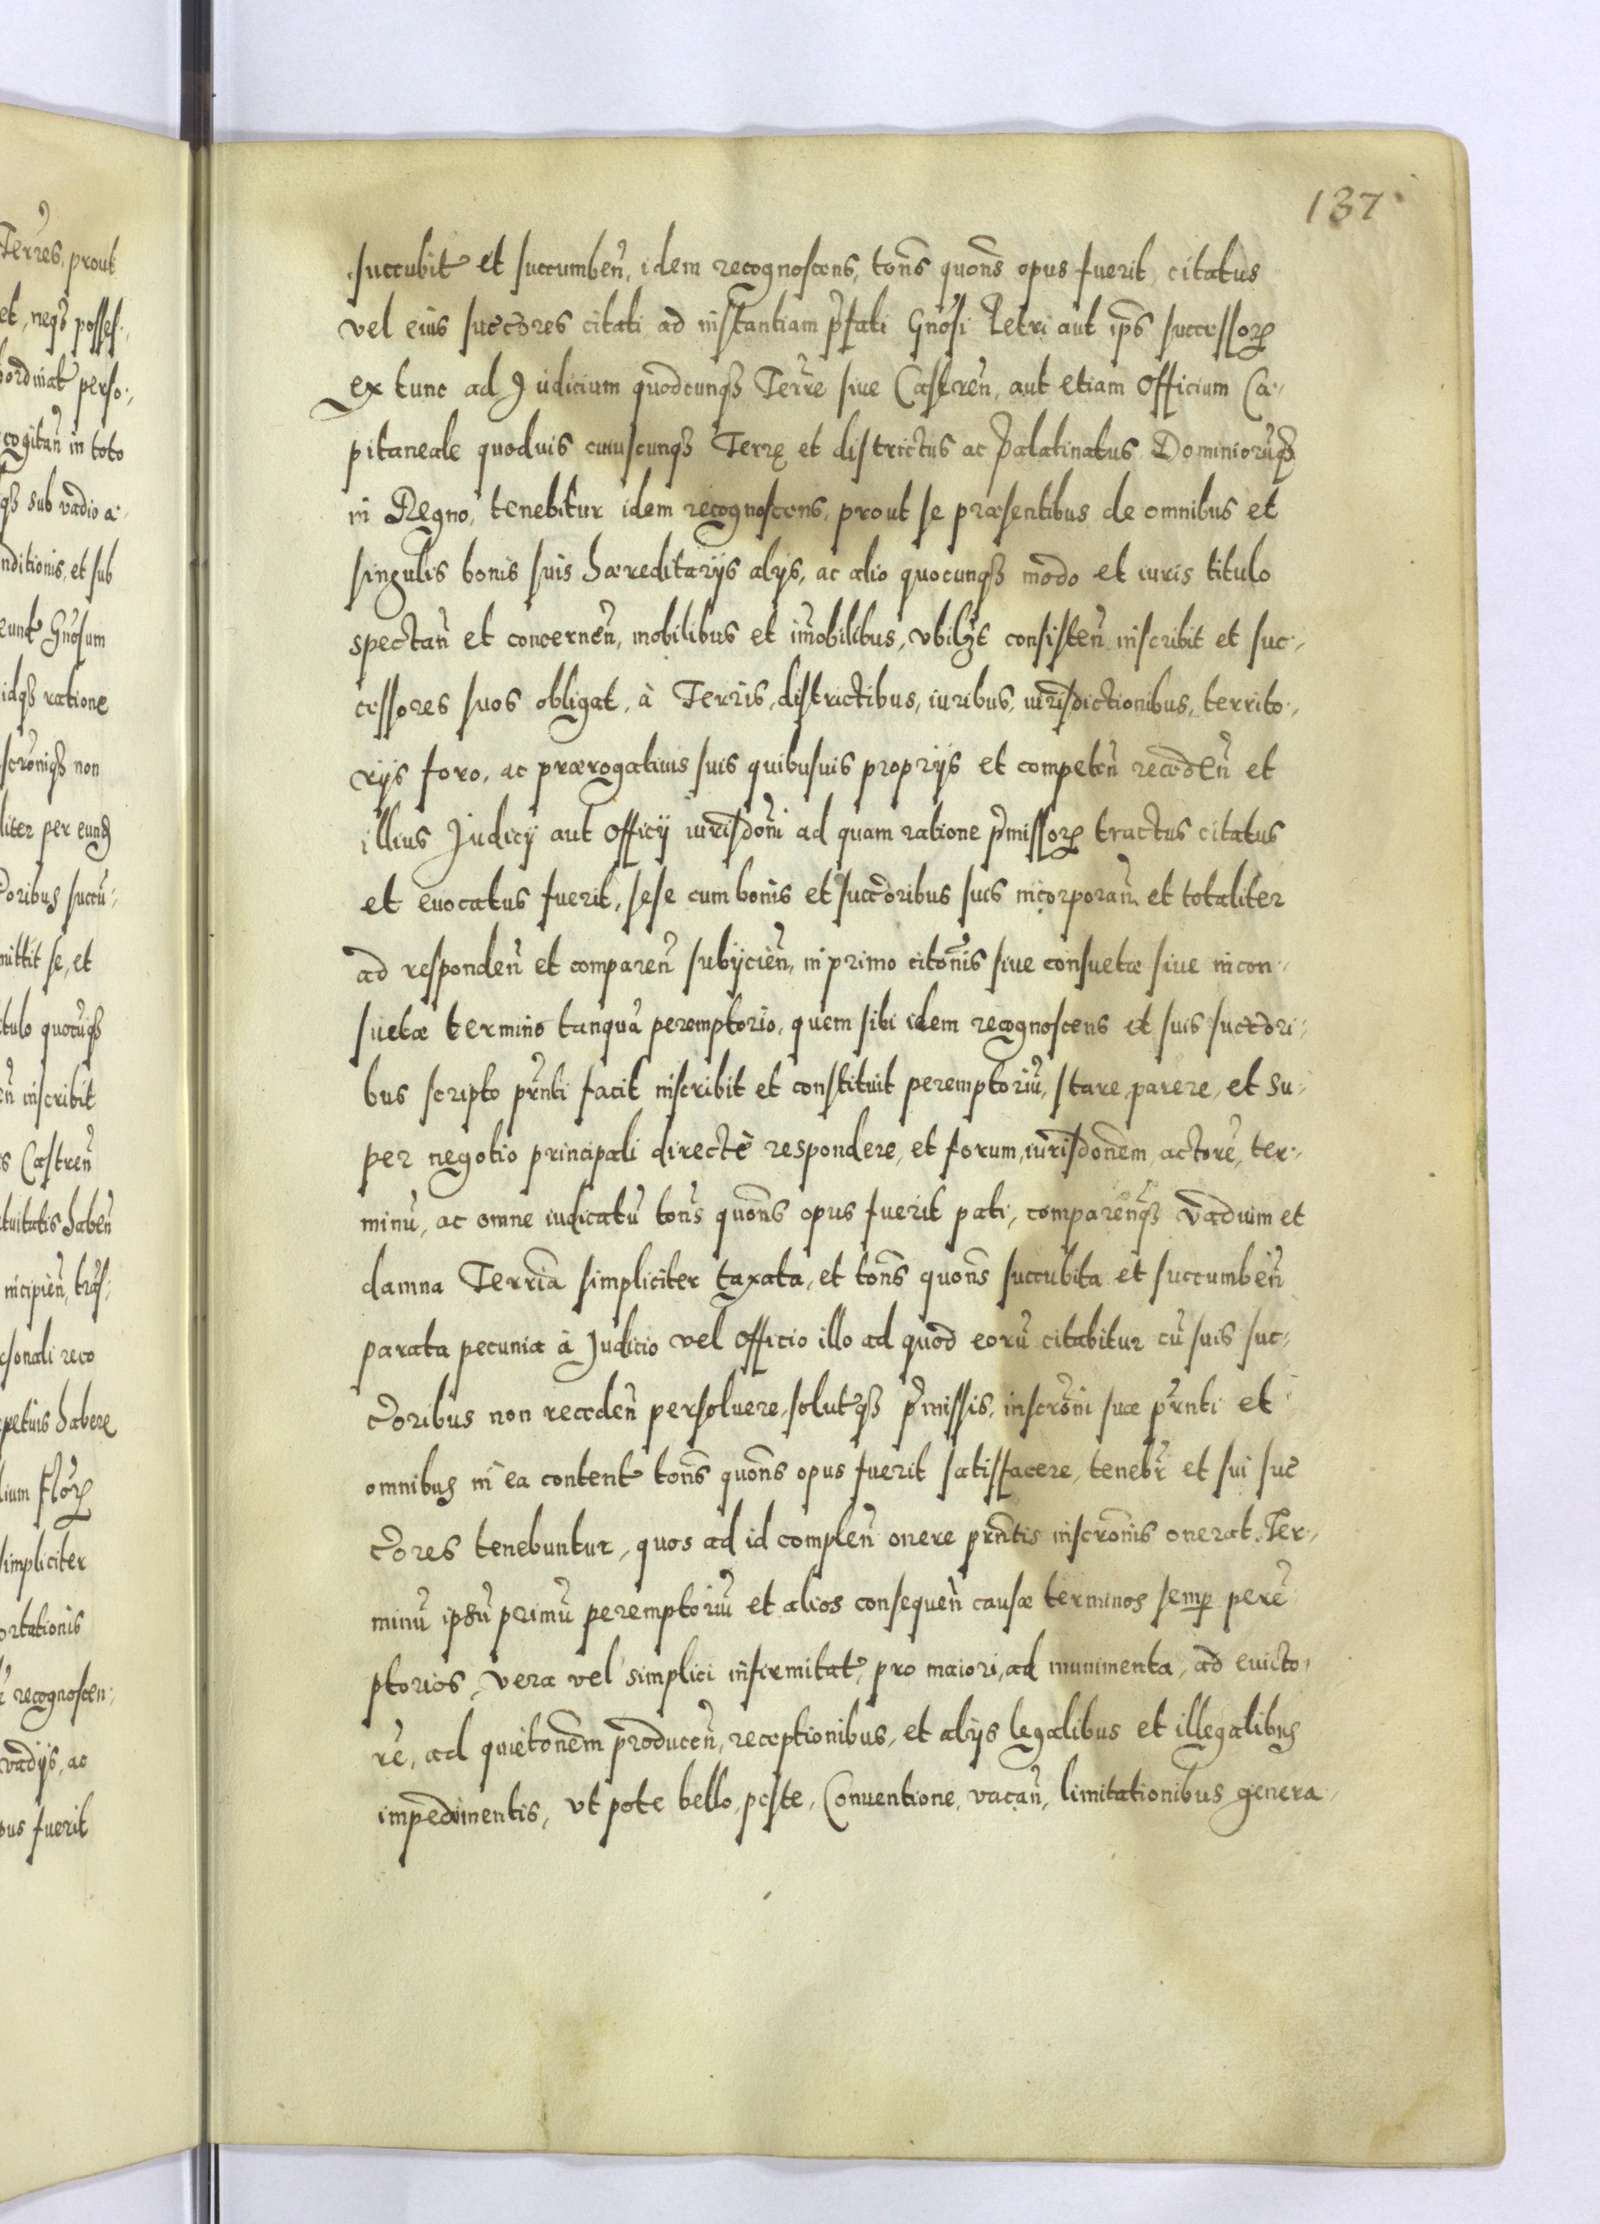 Terres, prout
et, neqz posses:
bordinat perso:
cogitan̄ in toto
qz sub vadio a:
nditionis, et sub
eunt Gnosum
idqz ratione
scroniqz non
liter per eund
coribus succu:
mittit se, et
tulo quocuqz
en̄ inscribit
s Castren̄
etuitatis haben̄
incipien̄, tras:
rsonali reco
petuis habere
lium Flor
simpliciter
ortationis
recognoscen:
vadijs, ac
pus fuerit
137
succubit et succumben̄, idem recognoscens, tons quons opus fuerit, citatus
vel eius succores citati ad instantiam pr̄fati Gnosi Petri aut ips successor
ex tunc ad Judicium quodcunqz Terr̄e siue Castren̄, aut etiam Officium Ca:
pitaneale quoduis cuiuscunqz Terrę et districtus ac Palatinatus Dominioruqz
in Regno, tenebitur idem recognoscens, prout se præsentibus de omnibus et
singulis bonis suis hæreditarijs alijs, ac alio quocunqz modo et iuris titulo
spectan̄ et concernen̄, mobilibus et im̄obilibus, vbilzt consisten̄ inscribit et suc:
cessores suos obligat, à Terris, districtibus, iuribus, iurisdictionibus, territo:
rijs foro, ac prærogatiuis suis quibusuis proprijs et competen̄ receden̄ et
illius Judicij aut Officij iurisdoni ad quam ratione pr̄missor tractus citatus
et euocatus fuerit, sese cum bonis et succoribus suis incorporan̄ et totaliter
ad responden̄ et comparen̄ subijcien̄, in primo citonis siue consuetæ siue incon:
suetæ termino tanquā peremptorio, quem sibi idem recognoscens et suis succori:
bus scripto prn̄ti facit inscribit et constituit peremptoriū, stare, parere, et su:
per negotio principali directè respondere, et forum, iurisdonem, actorē, ter:
minū, ac omne iudicatū tons quons opus fuerit pati, comparenqz vadium et
damna Terria simpliciter taxata, et tons quons succubita et succumben̄
parata pecunia à Judicio vel Officio illo ad quod eorū citabitur cū suis suc:
coribus non receden̄ persoluere, solutqz pr̄missis, inscroni suæ prn̄ti et
omnibus in ea content tons quons opus fuerit satisfacere, tenebr et sui suc
cores tenebuntur, quos ad id complen̄ onere prn̄tis inscronis onerat. Ter:
minū ipsū primū peremptoriū et alios consequen̄ causæ terminos semp perē
ptorios, vera vel simplici infirmitat, pro maiori, ad munimenta, ad euicto:
rē, ad quietonem producen̄, receptionibus, et alijs legalibus et illegalibus
impedimentis, vt pote bello, peste, Conuentione, vacan̄, limitationibus genera: